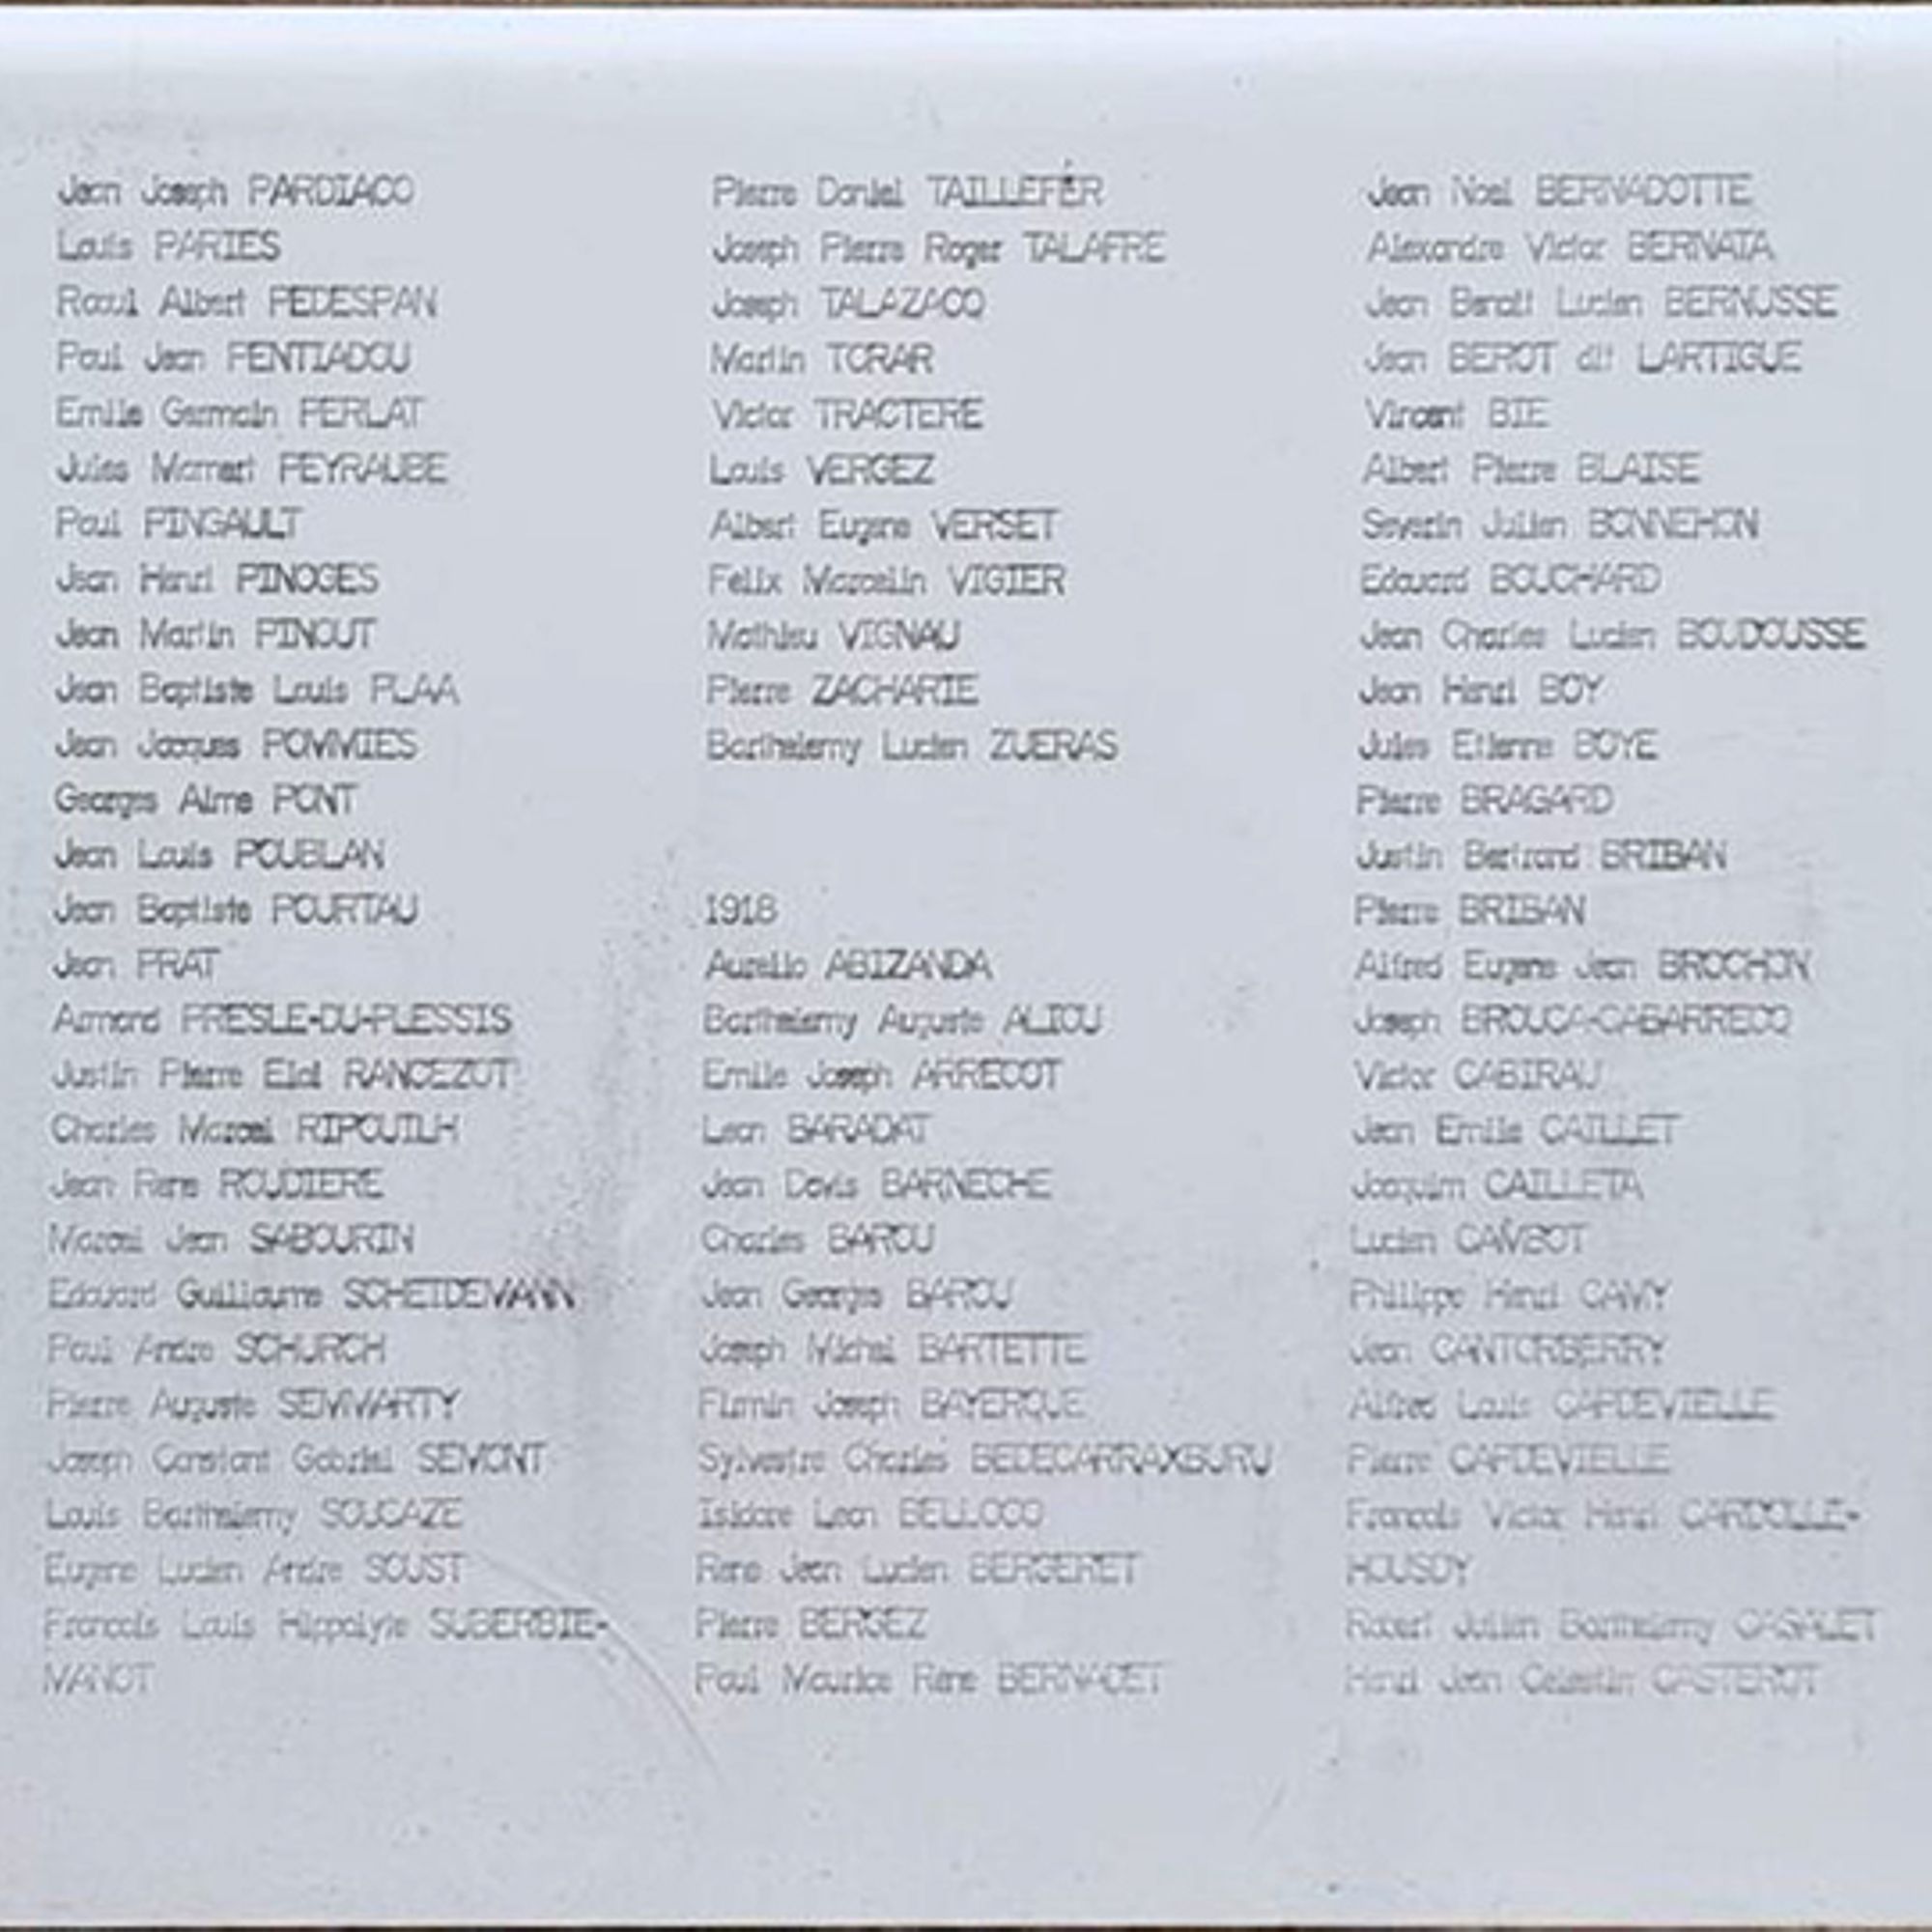 Jean Joseph PARDIACO
Louis PARIES
Raoul Albert PEDESPAN
Paul Jean PENTIADOU
Emile Germain PERLAT
Jules Mamert PEYRAUBE
Paul PINGAULT
Jean Henri PINOGES
Jean Martin PINOUT
Jean Baptiste Louis PLAA
Jean Jacques POMMIES
Georges Aime PONT
Jean Louis POUBLAN
Jean Baptiste POURTAU
Jean PRAT
Armand PRESLE-DU-PLESSIS
Justin Pierre Eloi RANCEZOT
Charles Marcel RIPOUILH
Jean Rene ROUDIERE
Marcel Jean SABOURIN
Edouard Guillaume SCHEIDEMANN
Paul Andre SCHURCH
Pierre Auguste SEMMARTY
Joseph Constant Gabriel SEMONT
Louis Barthelemy SOUCAZE
Eugene Lucien Andre SOUST
Francois Louis Hippolyte SUBERBIE-
MANOT
Pierre Daniel TAILLEFER
Joseph Pierre Roger TALAFRE
Joseph TALAZACQ
Martin TORAR
Victor TRACTERE
Louis VERGEZ
Albert Eugene VERSET
Felix Marcelin VIGIER
Mathieu VIGNAU
Pierre ZACHARIE
Barthelemy Lucien ZUERAS
1918
Aurelio ABIZANDA
Barthelemy Auguste ALIOU
Emile Joseph ARRECOT
Leon BARADAT
Jean Davis BARNECHE
Charles BAROU
Jean Georges BAROU
Joseph Michel BARTETTE
Firmin Joseph BAYERQUE
Sylvestre Charles BEDECARRAXBURU
Isidore Leon BELLOCQ
Rene Jean Lucien BERGERET
Pierre BERGEZ
Paul Maurice Rene BERNADET
Jean Noel BERNADOTTE
Alexandre Victor BERNATA
Jean Benoit Lucien BERNUSSE
Jean BEROT dit LARTIGUE
Vincent BIE
Albert Pierre BLAISE
Severin Julien BONNEHON
Edouard BOUCHARD
Jean Charles Lucien BOUDOUSSE
Jean Henri BOY
Jules Etienne BOYE
Pierre BRAGARD
Justin Bertrand BRIBAN
Pierre BRIBAN
Alfred Eugene Jean BROCHON
Joseph BROUCA-CABARRECQ
Victor CABIRAU
Jean Emile CAILLET
Joaquim CAILLETA
Lucien CAMBOT
Philippe Henri CAMY
Jean CANTORBERRY
Alfred Louis CAPDEVIELLE
Pierre CAPDEVIELLE
Francois Victor Henri CARDOLLE-
HOUSDY
Robert Julien Barthelemy CASALET
Henri Jean Celestin CASTEROT